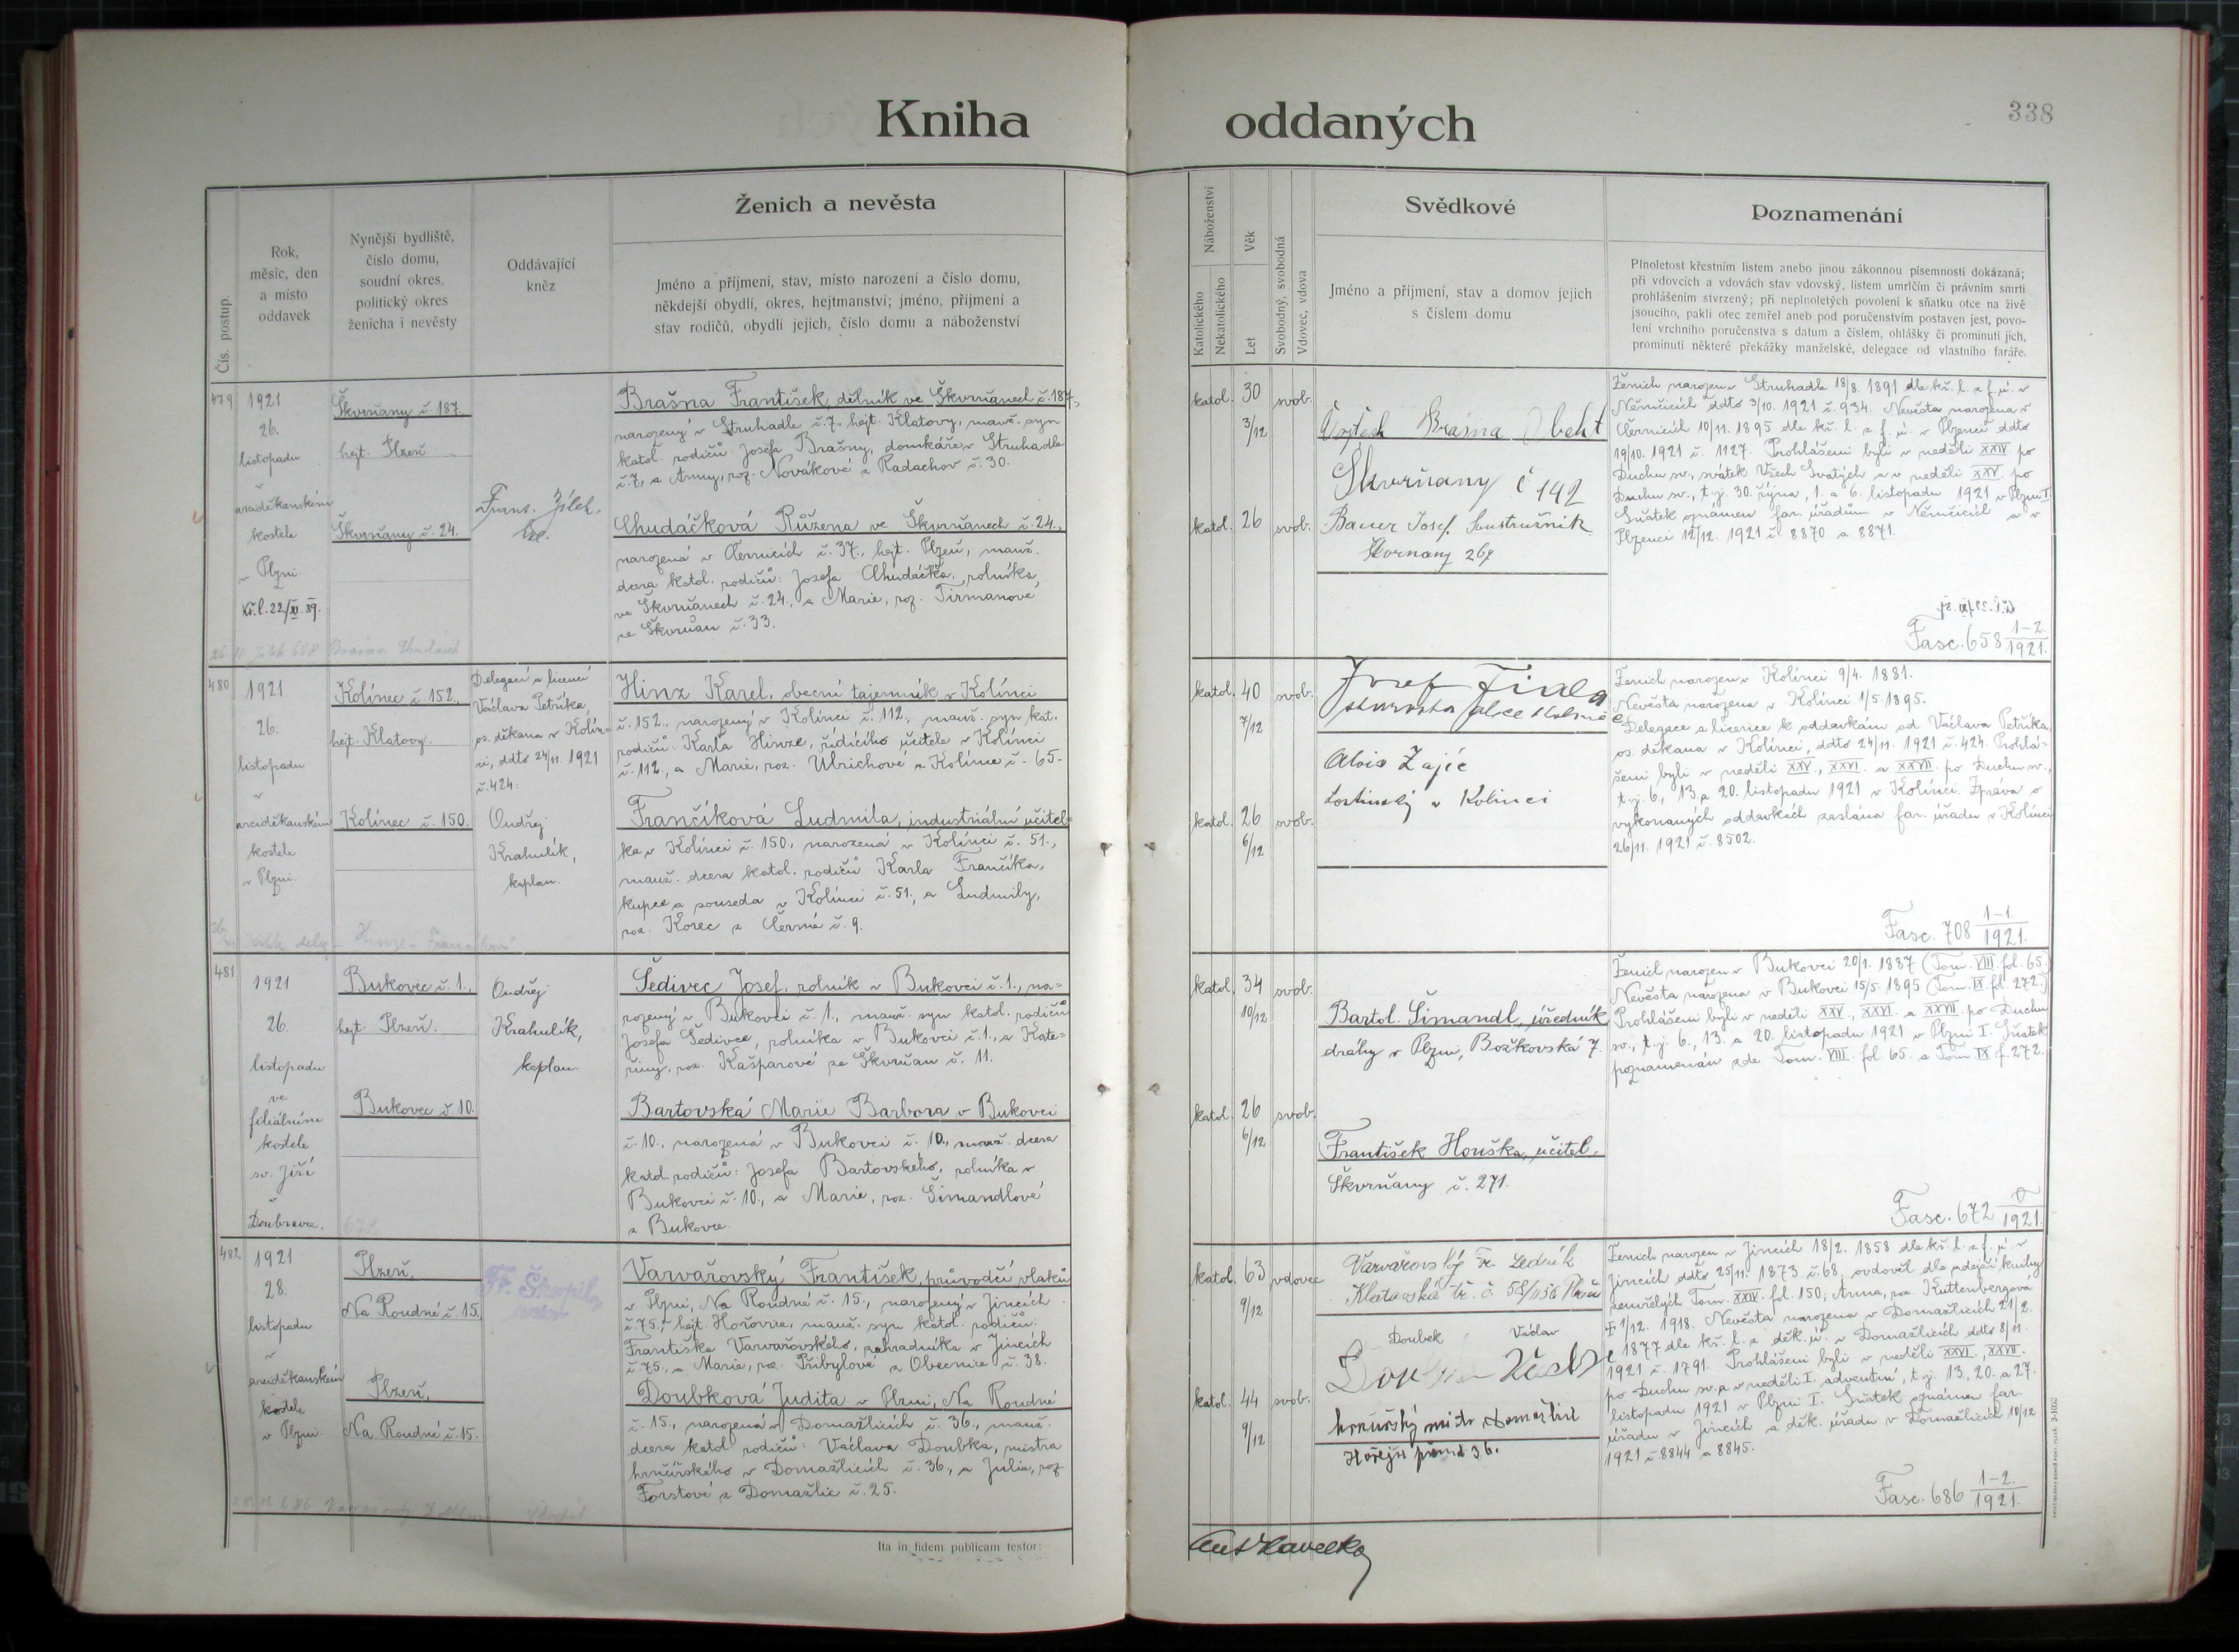 Kniha oddaných
338
Čís. postup.
Rok,
měsíc, den
a místo
oddavek
Nynější bydliště,
číslo domu,
soudní okres,
politický okres
ženicha i nevěsty
Oddávající
kněz
Ženich a nevěsta
Jméno a příjmení, stav, místo narození a číslo domu,
někdejší obydlí, okres, hejtmanství; jméno, příjmení a
stav rodičů, obydlí jejich, číslo domu a náboženství
Náboženství
Katolického
Nekatolického
Věk
Let
Svobodný, svobodná
Vdovec, vdova
Svědkové
Jméno a příjmení, stav a domov jejich
s číslem domu
Poznamenání
Plnoletost křestním listem anebo jinou zákonnou písemností dokázaná;
při vdovcích a vdovách stav vdovský, listem umrlčím či právním smrti
prohlášením stvrzený; při neplnoletých povolení k sňatku otce na živě
jsoucího, pakli otec zemřel aneb pod poručenstvím postaven jest, povo-
lení vrchního poručenstva s datum a číslem, ohlášky či prominutí jich,
prominutí některé překážky manželské, delegace od vlastního faráře.
479
1921
26.
listopadu
v
arciděkanském
kostele
v Plzni.
Kř.l.22/XI.39.
Škvrňany č. 187.
hejt. Plzeň.
Škvrňany č. 24.
Frant. Jílek,
Brašna František, dělník ve Škvrňanech č. 187.,
narozený v Struhadle č. 7. hejt. Klatovy, manž. syn
katol. rodičů Josefa Brašny, domkáře v Struhadle
č. 7, a Anny, roz. Novákové z Radachov č. 30.
Chudáčková Růžena ve Škvrňanech č. 24.,
narozená v Černicích č. 37., hejt. Plzeň, manž.
dcera katol. rodičů: Josefa Chudáčka, rolníka,
ve Škvrňanech č. 24., a Marie, roz. Tirmanové
ze Škvrňan č. 33.
katol. 30 svob.
3/12
katol. 26 svob.
Vojtěch Brašna
Skvrňany č 142
Bauer Josef. Soustružník
Skvrnany 267
Ženich narozen v Struhadle 18/8. 1891 dle kř. l. z f. ú. v
Němčicích ddto 3/10. 1921 č. 934. Nevěsta narozena v
Černicích 10/11. 1895 dle kř. l. z f. ú. v Plzenci ddto
19/10. 1921 č. 1127. Prohlášeni byli v neděli XXIV. po
Duchu sv., svátek Všech Svatých a v neděli XXV. po
Duchu sv., t. j. 30. října, 1. a 6. listopadu 1921 v Plzni I.
Sňatek oznámen far. úřadům v Němčicích a v
Plzenci 12/12. 1921 č. 8870 a 8871.
Fasc. 658 1-2./1921.
480
1921
26.
listopadu
v
arciděkanském
kostele
v Plzni.
Kolínec č. 152.,
hejt. Klatovy.
Kolínec č. 150.
Delegací a licencí
Václava Petříka,
os. děkana v Kolín=
ci, ddto 24/11. 1921
č. 424.
Ondřej
Krahulík,
kaplan.
Hinz Karel, obecní tajemník v Kolínci
č. 152., narozený v Kolínci č. 112., manž. syn kat.
rodičů Karla Hinze, řídícího učitele v Kolínci
č. 112., a Marie, roz. Ulrichové z Kolínce č. 65.
Frančíková Ludmila, industriální učitel=
ka v Kolínci č. 150., narozená v Kolínci č. 51.,
manž. dcera katol. rodičů Karla Frančíka,
kupce a souseda v Kolínci č. 51., a Ludmily,
roz. Korec z Černé č. 9.
katol. 40 svob.
7/12
katol. 26 svob.
6/12
Josef Fiala
starosta obce Kolinec
Alois Zajíc
hostinský v Kolinci
Ženich narozen v Kolínci 9/4. 1881.
Nevěsta narozena v Kolínci 1/5. 1895.
Delegace a licence k oddavkám od Václava Petříka,
os. děkana v Kolínci, ddto 24/11. 1921 č. 424. Prohlá=
šeni byli v neděli XXV., XXVI. a XXVII. po Duchu sv.,
t. j. 6., 13. a 20. listopadu 1921 v Kolínci. Zpráva o
vykonaných oddavkách zaslána far. úřadu v Kolínci
26/11. 1921 č. 8502.
Fasc. 708 1-1./1921.
481
1921
26.
listopadu
ve
filiálním
kostele
sv. Jiří
v
Doubravce.
Bukovec č. 1.,
hejt. Plzeň.
Bukovec č. 10.
Ondřej
Krahulík,
kaplan.
Šedivec Josef, rolník v Bukovci č. 1., na=
rozený v Bukovci č. 1., manž. syn katol. rodičů
Josefa Šedivce, rolníka v Bukovci č. 1., a Kate=
řiny, roz. Kašparové ze Škvrňan č. 11.
Bartovská Marie Barbora v Bukovci
č. 10., narozená v Bukovci č. 10., manž. dcera
katol. rodičů: Josefa Bartovského, rolníka v
Bukovci č. 10., a Marie, roz. Šimandlové
z Bukovce.
katol. 34 svob.
10/12
katol. 26 svob.
6/12
Bartol. Šimandl, úředník
dráhy v Plzni, Božkovská 7.
František Houška, učitel,
Škvrňany č. 271.
Ženich narozen v Bukovci 20/1. 1887 (Tom. VIII fol. 65.
Nevěsta narozena v Bukovci 15/5. 1895 (Tom. IX. fol. 272.)
Prohlášeni byli v neděli XXV., XXVI. a XXVII. po Duchu
sv., t. j. 6., 13. a 20. listopadu 1921 v Plzni I. Sňatek
poznamenán zde Tom. VIII. fol. 65. a Tom. IX f. 272.
Fasc. 672 0/1921.
482
1921
28.
listopadu
v
arciděkanském
kostele
v Plzni.
Plzeň,
Na Roudné č. 15.
Plzeň,
Na Roudné č. 15.
Fr. Škopil,
Varvařovský František, průvodčí vlaků
v Plzni, Na Roudné č. 15., narozený v Jincích
č. 75., hejt. Hořovice, manž. syn katol. rodičů:
Františka Varvařovského, zahradníka v Jincích
č. 75., a Marie, roz. Přibylové z Obecnice č. 38.
Doubková Judita v Plzni, Na Roudné
č. 15., narozená v Domažlicích č. 36., manž.
dcera katol. rodičů: Václava Doubka, mistra
hrnčířského v Domažlicích č. 36., a Julie, roz.
Forstové z Domažlic č. 25.
katol. 63 vdovec
9/12
katol. 44 svob.
9/12
Varvařovský Fr.
Klatovská tř. č.
Doubek Václav
hrnčířský mistr Domažlice
36.
Ženich narozen v Jincích 18/2. 1858 dle kř. l. z f. ú. v
Jincích ddto 25/11. 1873 č. 68., ovdověl dle zdejší knihy
zemřelých Tom. XXIV. fol. 150; Anna, roz. Kuttenbergová
† 1/12. 1918. Nevěsta narozena v Domažlicích 21/2.
1877 dle kř. l. z děk. ú. v Domažlicích ddto 8/11.
1921 č. 1791. Prohlášeni byli v neděli XXVI., XXVII.
po Duchu sv. a v neděli I. adventní, t. j. 13., 20. a 27.
listopadu 1921 v Plzni I. Sňatek oznámen far.
úřadu v Jincích a děk. úřadu v Domažlicích 10/12.
1921 č. 8844 a 8845.
Fasc. 686 1-2./1921.
Ita in fidem publicam testor:
Ant Havelka